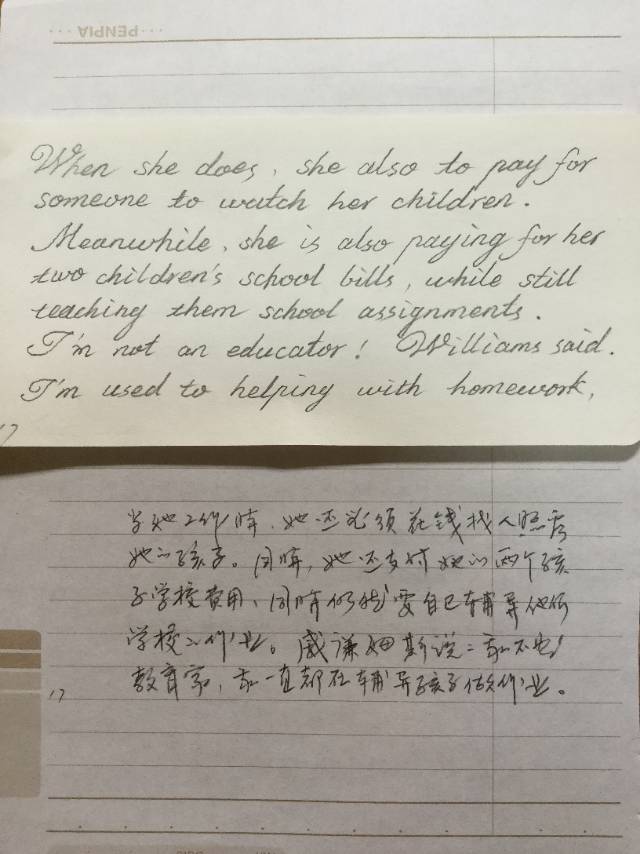 PENPIA
When she does, she also to pay for
someone to watch her children.
Meanwhile, she is also paying for her
two children's school bills, while still
teaching them school assignments.
I'm not an educator! Williams said.
I'm used to helping with homework,
17
当她工作时，她还必须花钱找人照看
她的孩子。同时，她还支付她的两个孩
子学校费用、同时仍然要自己辅导他们
学校工作业。威谦姆斯说：我不是
教育家，我一直都在辅导孩子做作业。
17